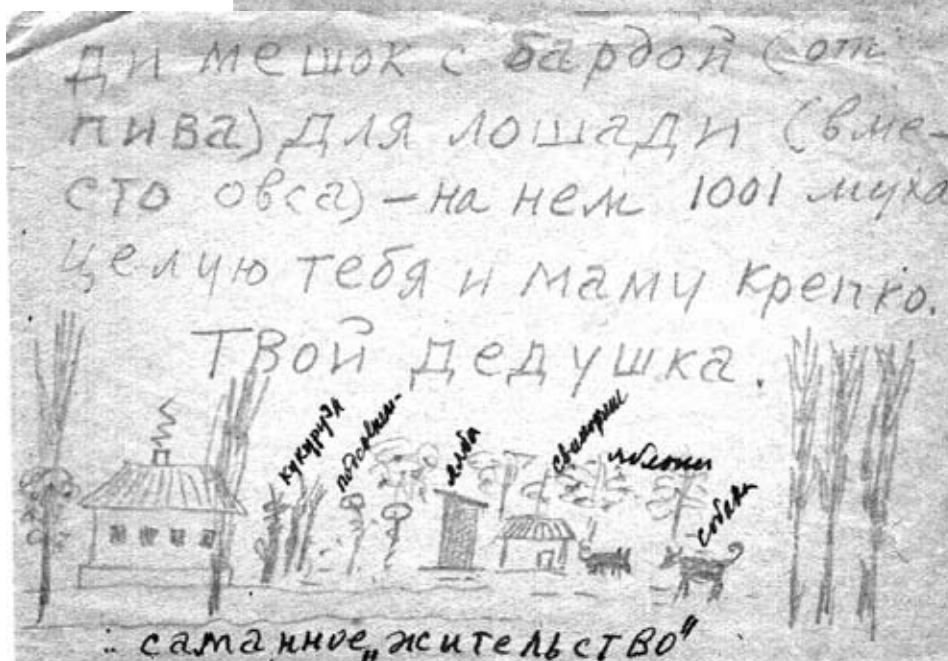 ди мешок с бардой (от
пива) для лошади (вме-
сто овса) – на нем 1001 муха
целую тебя и маму крепко.
Твой дедушка.
кукуруза
яблони
собака
саманное „жительство"